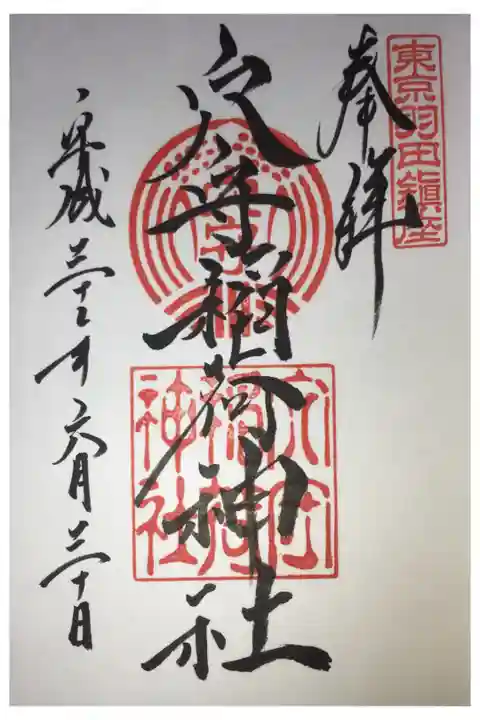 東京羽田鎭座
奉拝
穴守稲荷神社
穴守
稲荷
神社
平成三十年六月三十日